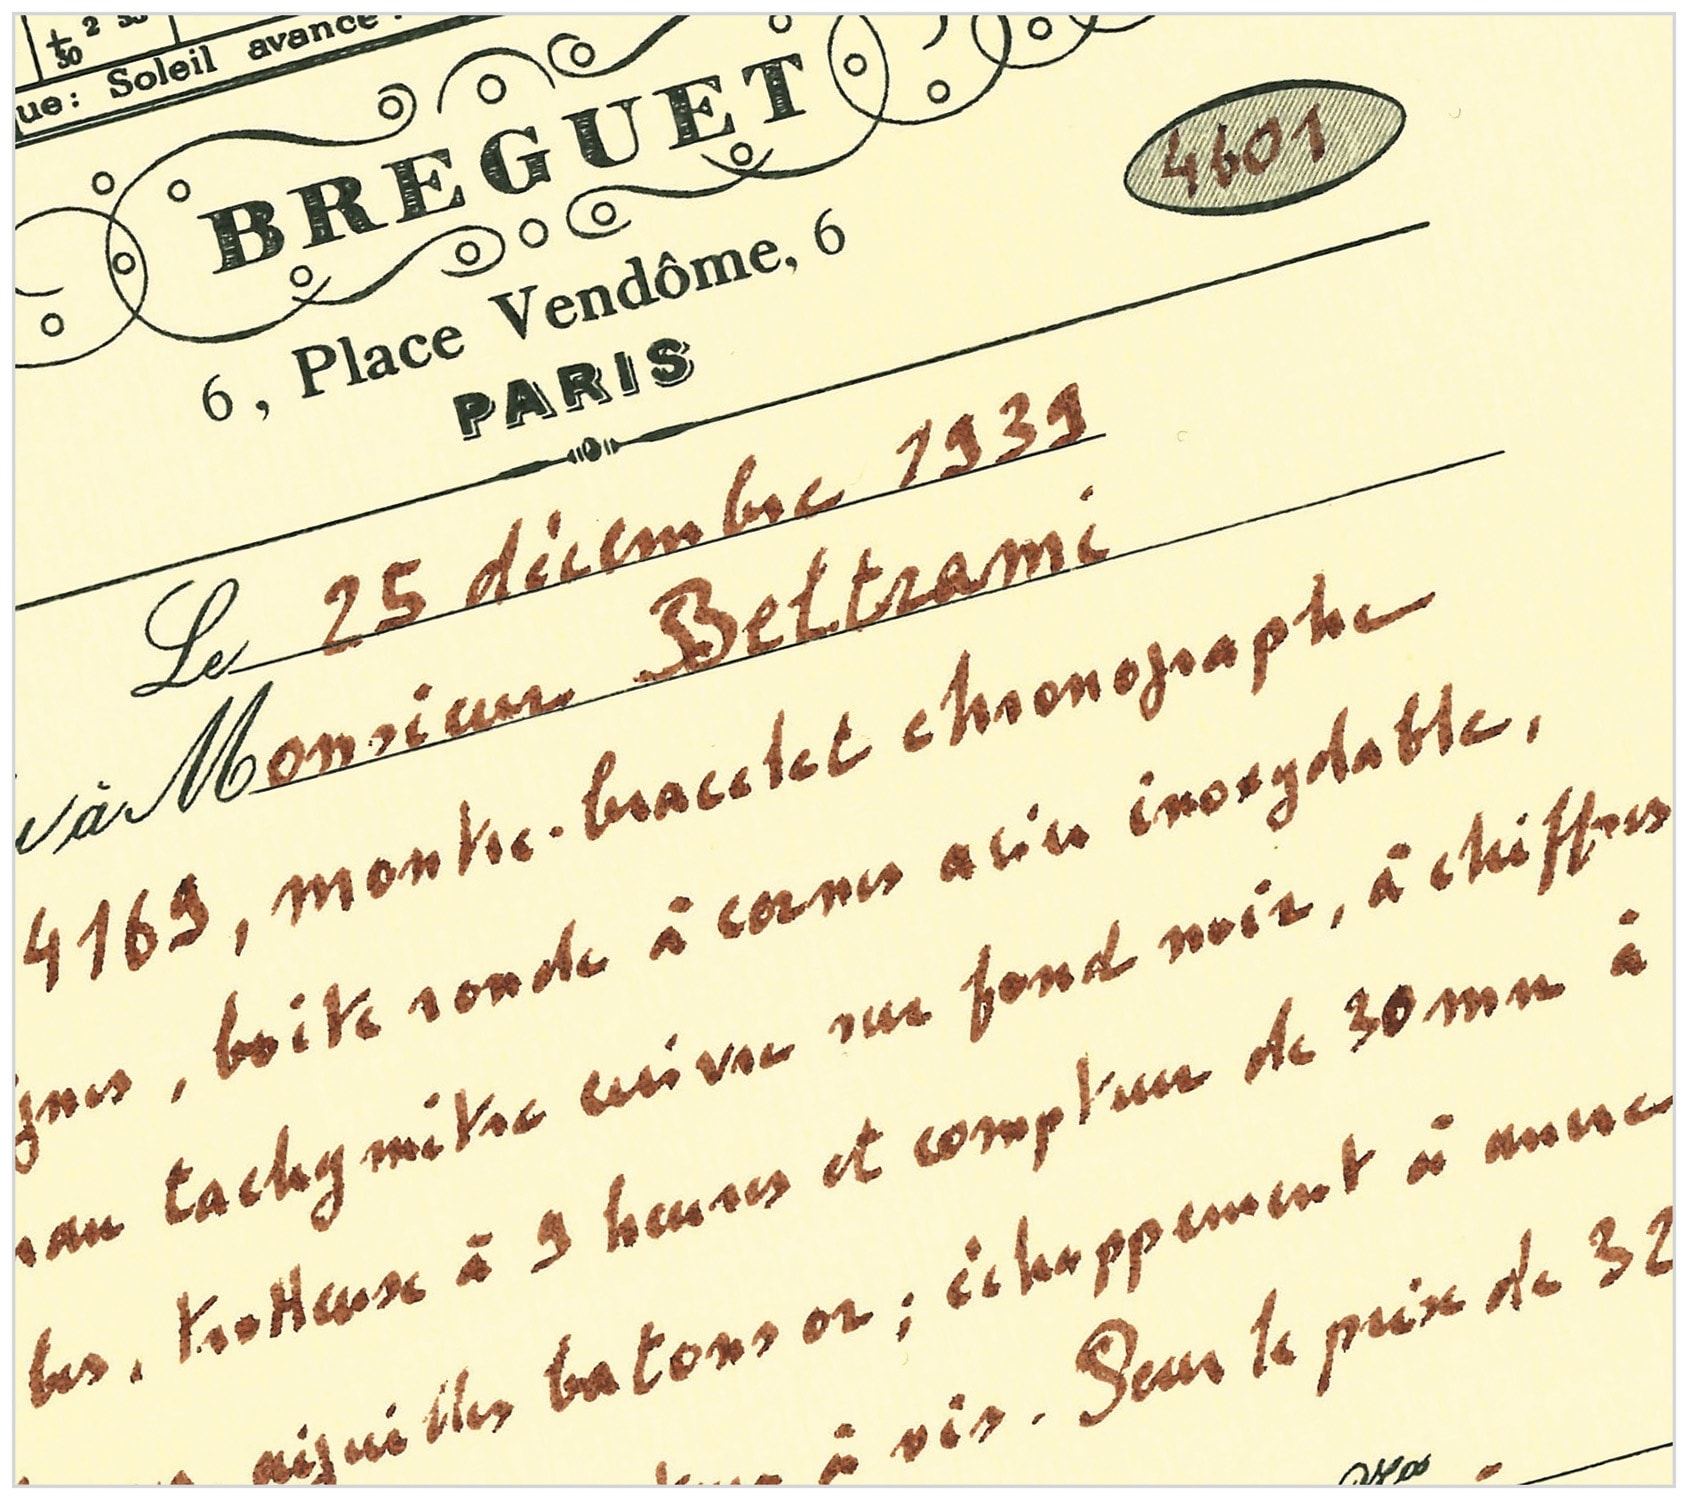 + 2
30
ue: Soleil avance
BREGUET
4601
6, Place Vendôme, 6
PARIS
Le 25 décembre 1939
à Monsieur Beltrami
4169, montre-bracelet chronographe
gnes, boîte ronde à cornes acier inoxydable,
ran tachymètre cuivre sur fond noir, à chiffres
les, trotteuse à 9 heures et compteur de 30 mn à
aiguilles batons or; échappement à ancre
à vis. Sur le prix de 32